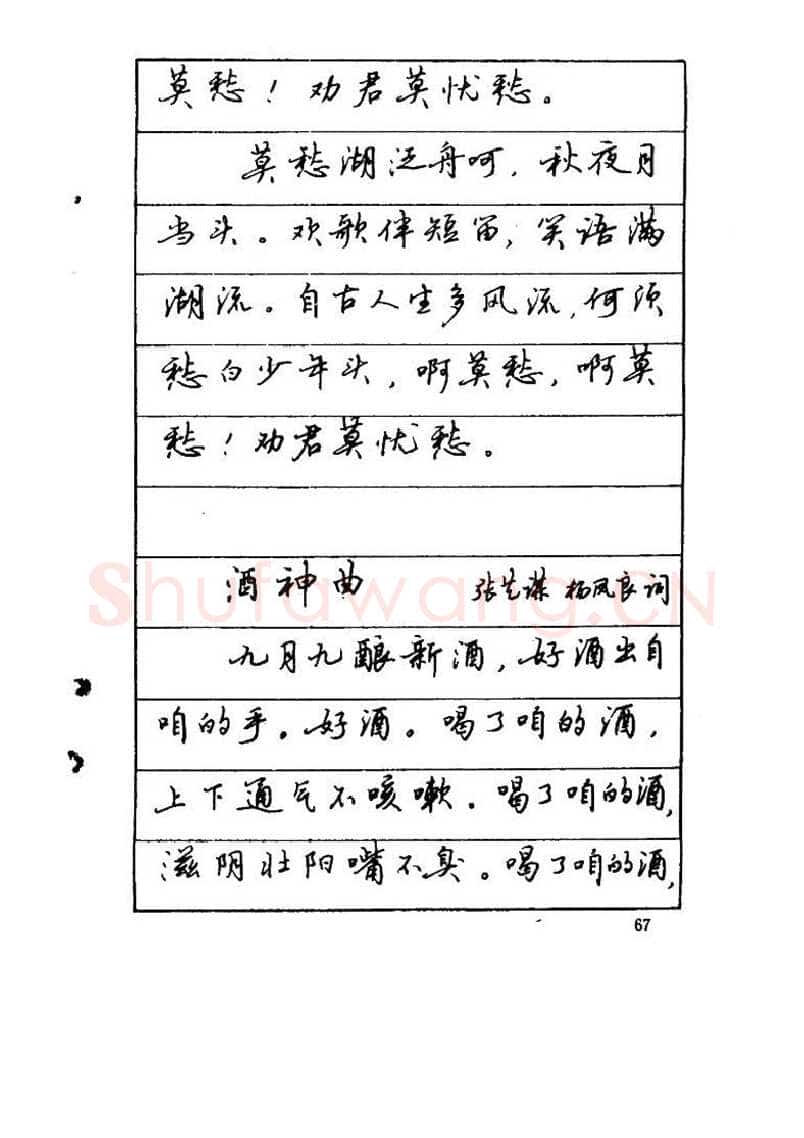 莫愁！劝君莫忧愁。
莫愁湖泛舟呵，秋夜月
当头。欢歌伴短笛，笑语满
湖流。自古人生多风流，何须
愁白少年头，啊莫愁，啊莫
愁！劝君莫忧愁。
酒神曲 张艺谋 杨凤良词
九月九酿新酒，好酒出自
咱的手。好酒。喝了咱的酒，
上下通气不咳嗽。喝了咱的酒，
滋阴壮阳嘴不臭。喝了咱的酒，
67
Shufawang.CN